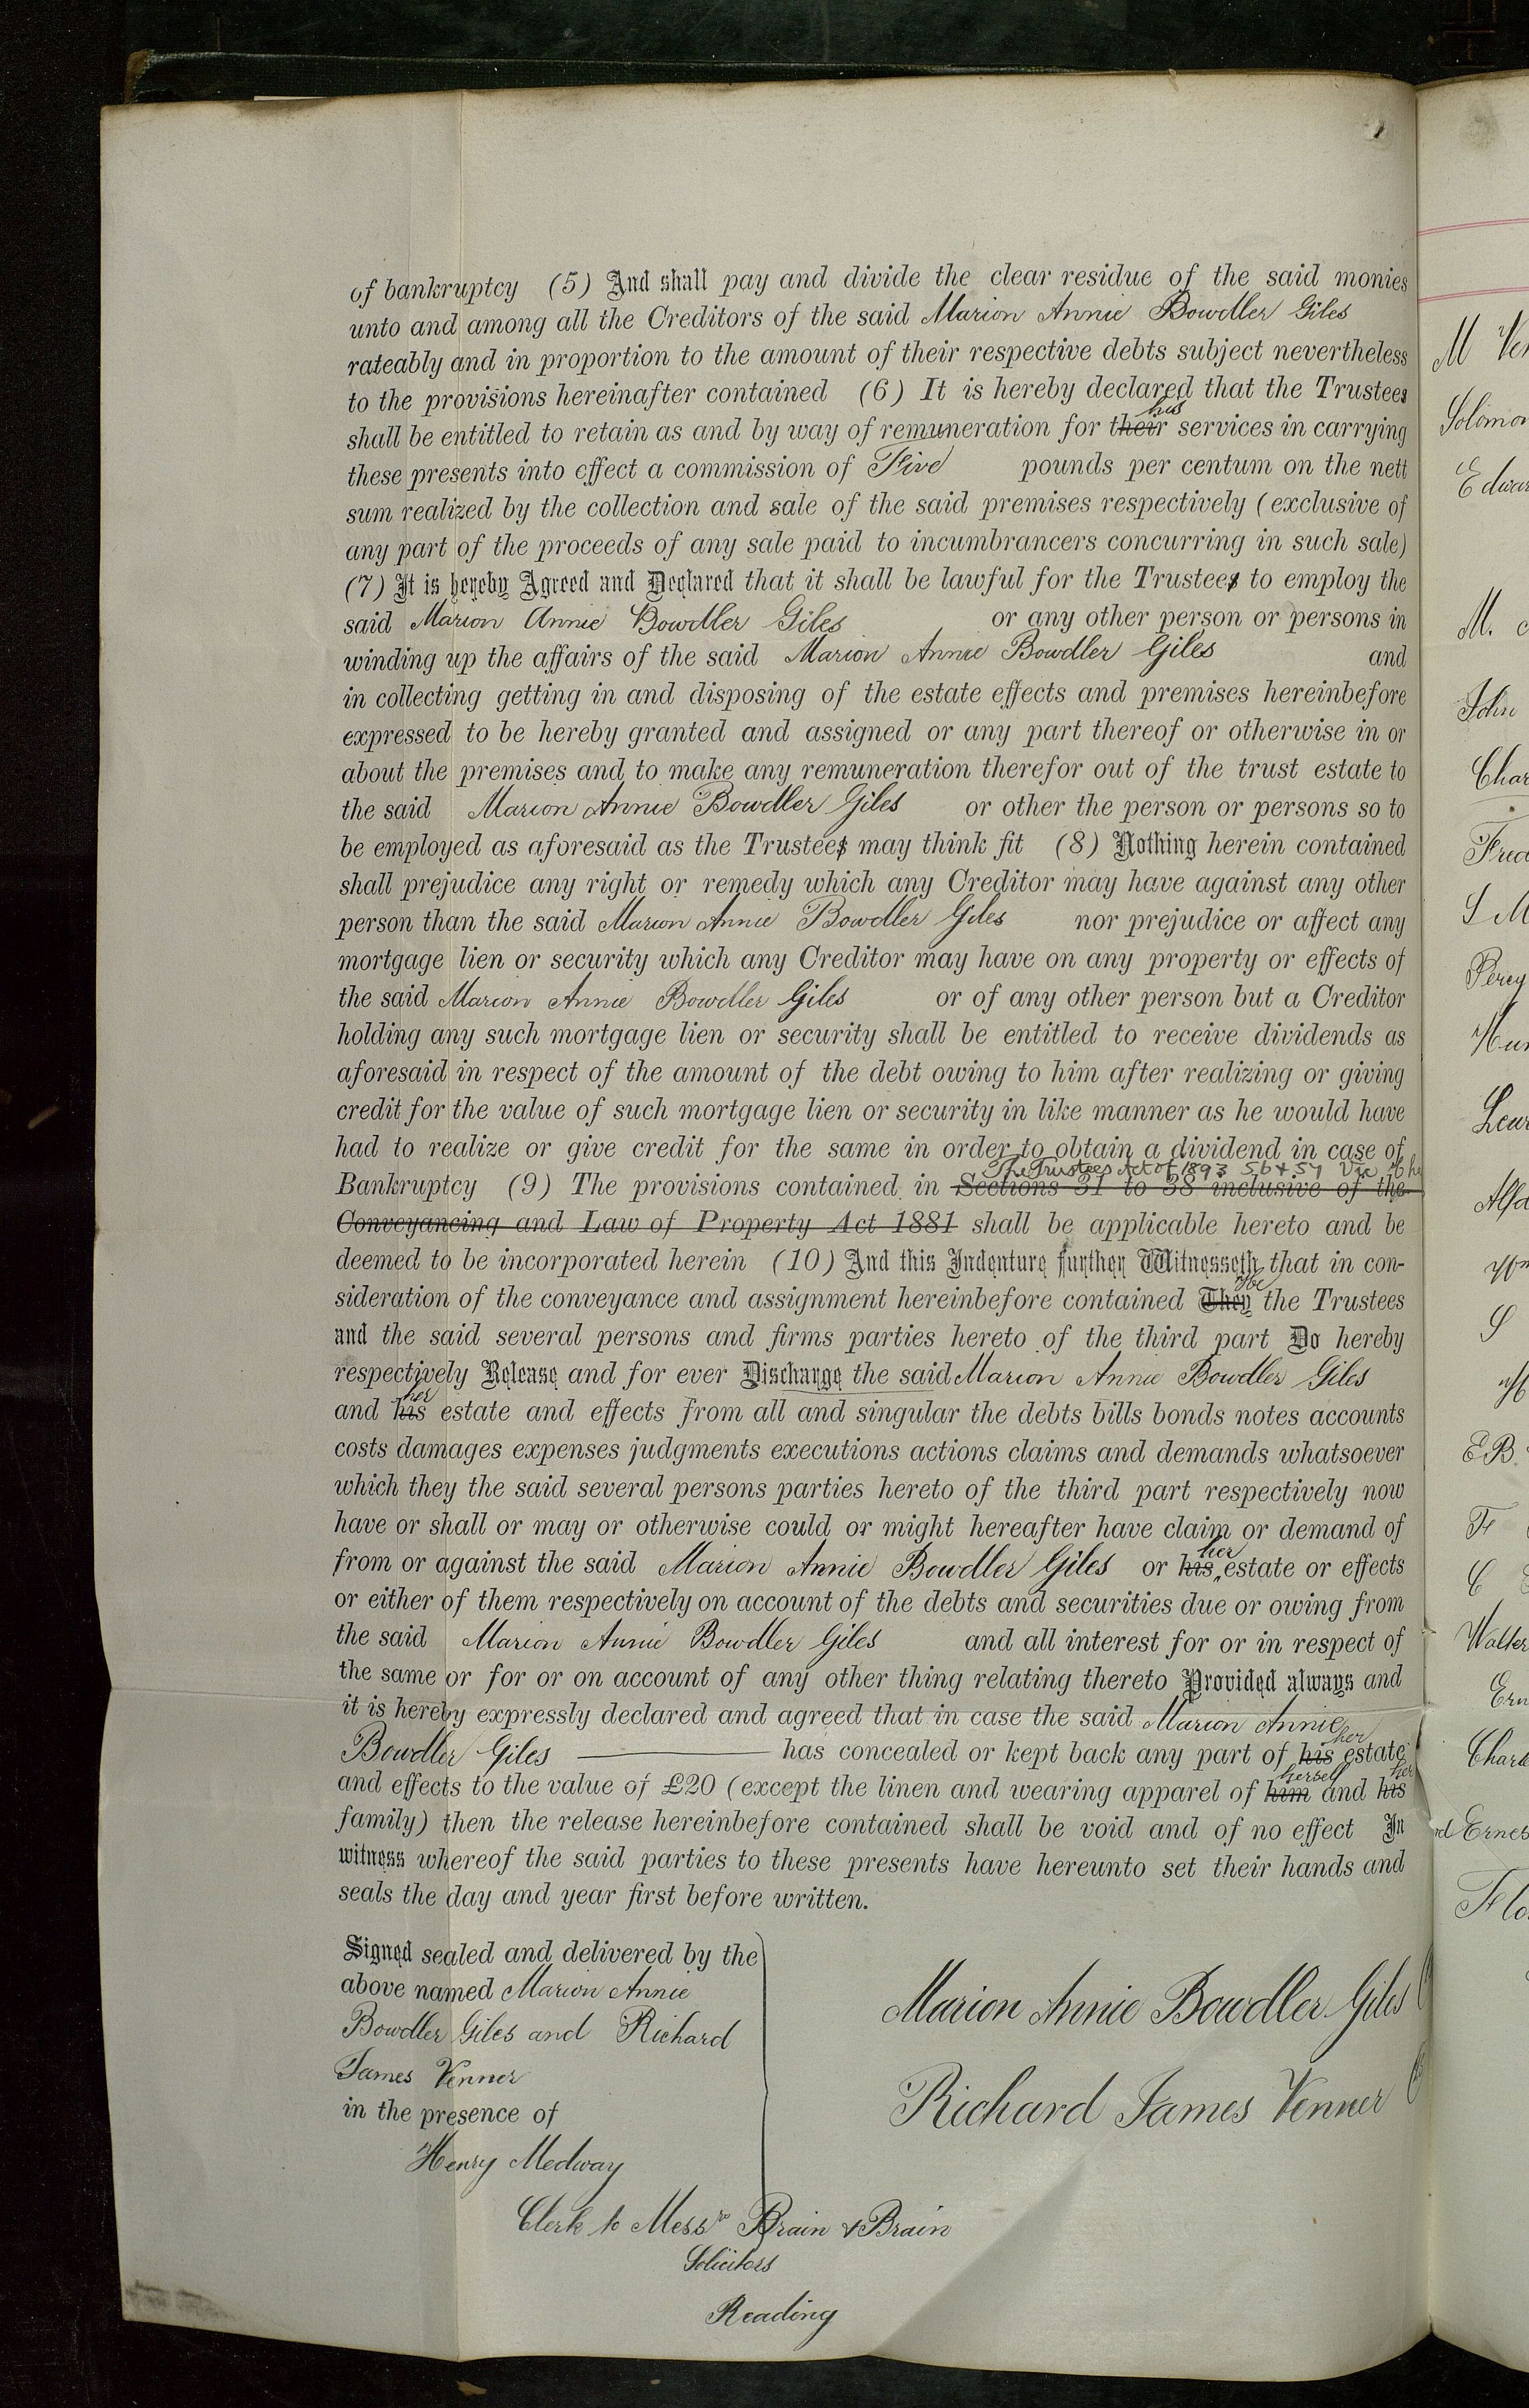 of bankruptcy (5) And shall pay and divide the clear residue of the said monies
unto and among all the Creditors of the said Marion Annie Bowdler Giles
rateably and in proportion to the amount of their respective debts subject nevertheless
to the provisions hereinafter contained (6) It is hereby declared that the Trustees
his
shall be entitled to retain as and by way of remuneration for their services in carrying
these presents into effect a commission of Five pounds per centum on the nett
sum realized by the collection and sale of the said premises respectively (exclusive of
any part of the proceeds of any sale paid to incumbrancers concurring in such sale)
(7) It is hereby Agreed and Declared that it shall be lawful for the Trustees to employ the
said Marion Annie Bowdler Giles or any other person or persons in
winding up the affairs of the said Marion Annie Bowdler Giles and
in collecting getting in and disposing of the estate effects and premises hereinbefore
expressed to be hereby granted and assigned or any part thereof or otherwise in or
about the premises and to make any remuneration therefor out of the trust estate to
the said Marion Annie Bowdler Giles or other the person or persons so to
be employed as aforesaid as the Trustees may think fit (8) Nothing herein contained
shall prejudice any right or remedy which any Creditor may have against any other
person than the said Marion Annie Bowdler Giles nor prejudice or affect any
mortgage lien or security which any Creditor may have on any property or effects of
the said Marion Annie Bowdler Giles or of any other person but a Creditor
holding any such mortgage lien or security shall be entitled to receive dividends as
aforesaid in respect of the amount of the debt owing to him after realizing or giving
credit for the value of such mortgage lien or security in like manner as he would have
had to realize or give credit for the same in order to obtain a dividend in case of
The Trustees Act of 1893 56 & 57 Vic
Bankruptcy (9) The provisions contained in Sections 31 to 38 inclusive of the
Conveyancing and Law of Property Act 1881 shall be applicable hereto and be
deemed to be incorporated herein (10) And this Indenture further Witnesseth that in con-
sideration of the conveyance and assignment hereinbefore contained They the Trustees
and the said several persons and firms parties hereto of the third part Do hereby
respectively Release and for ever Discharge the said Marion Annie Bowdler Giles
her
and his estate and effects from all and singular the debts bills bonds notes accounts
costs damages expenses judgments executions actions claims and demands whatsoever
which they the said several persons parties hereto of the third part respectively now
have or shall or may or otherwise could or might hereafter have claim or demand of
her
from or against the said Marion Annie Bowdler Giles or his estate or effects
or either of them respectively on account of the debts and securities due or owing from
the said Marion Annie Bowdler Giles and all interest for or in respect of
the same or for or on account of any other thing relating thereto Provided always and
it is hereby expressly declared and agreed that in case the said Marion Annie
her
Bowdler Giles has concealed or kept back any part of his estate
herself her
and effects to the value of £20 (except the linen and wearing apparel of him and his
family) then the release hereinbefore contained shall be void and of no effect In
witness whereof the said parties to these presents have hereunto set their hands and
seals the day and year first before written.
Signed sealed and delivered by the
above named Marion Annie
Bowdler Giles and Richard
James Venner
in the presence of
Henry Medway
Clerk to Messrs Brain & Brain
Solicitors
Reading
Marion Annie Bowdler Giles
Richard James Venner
M
Edwar
M.
John
Char
Percy
E.B.
Walter
Ern
Charle
Ernes